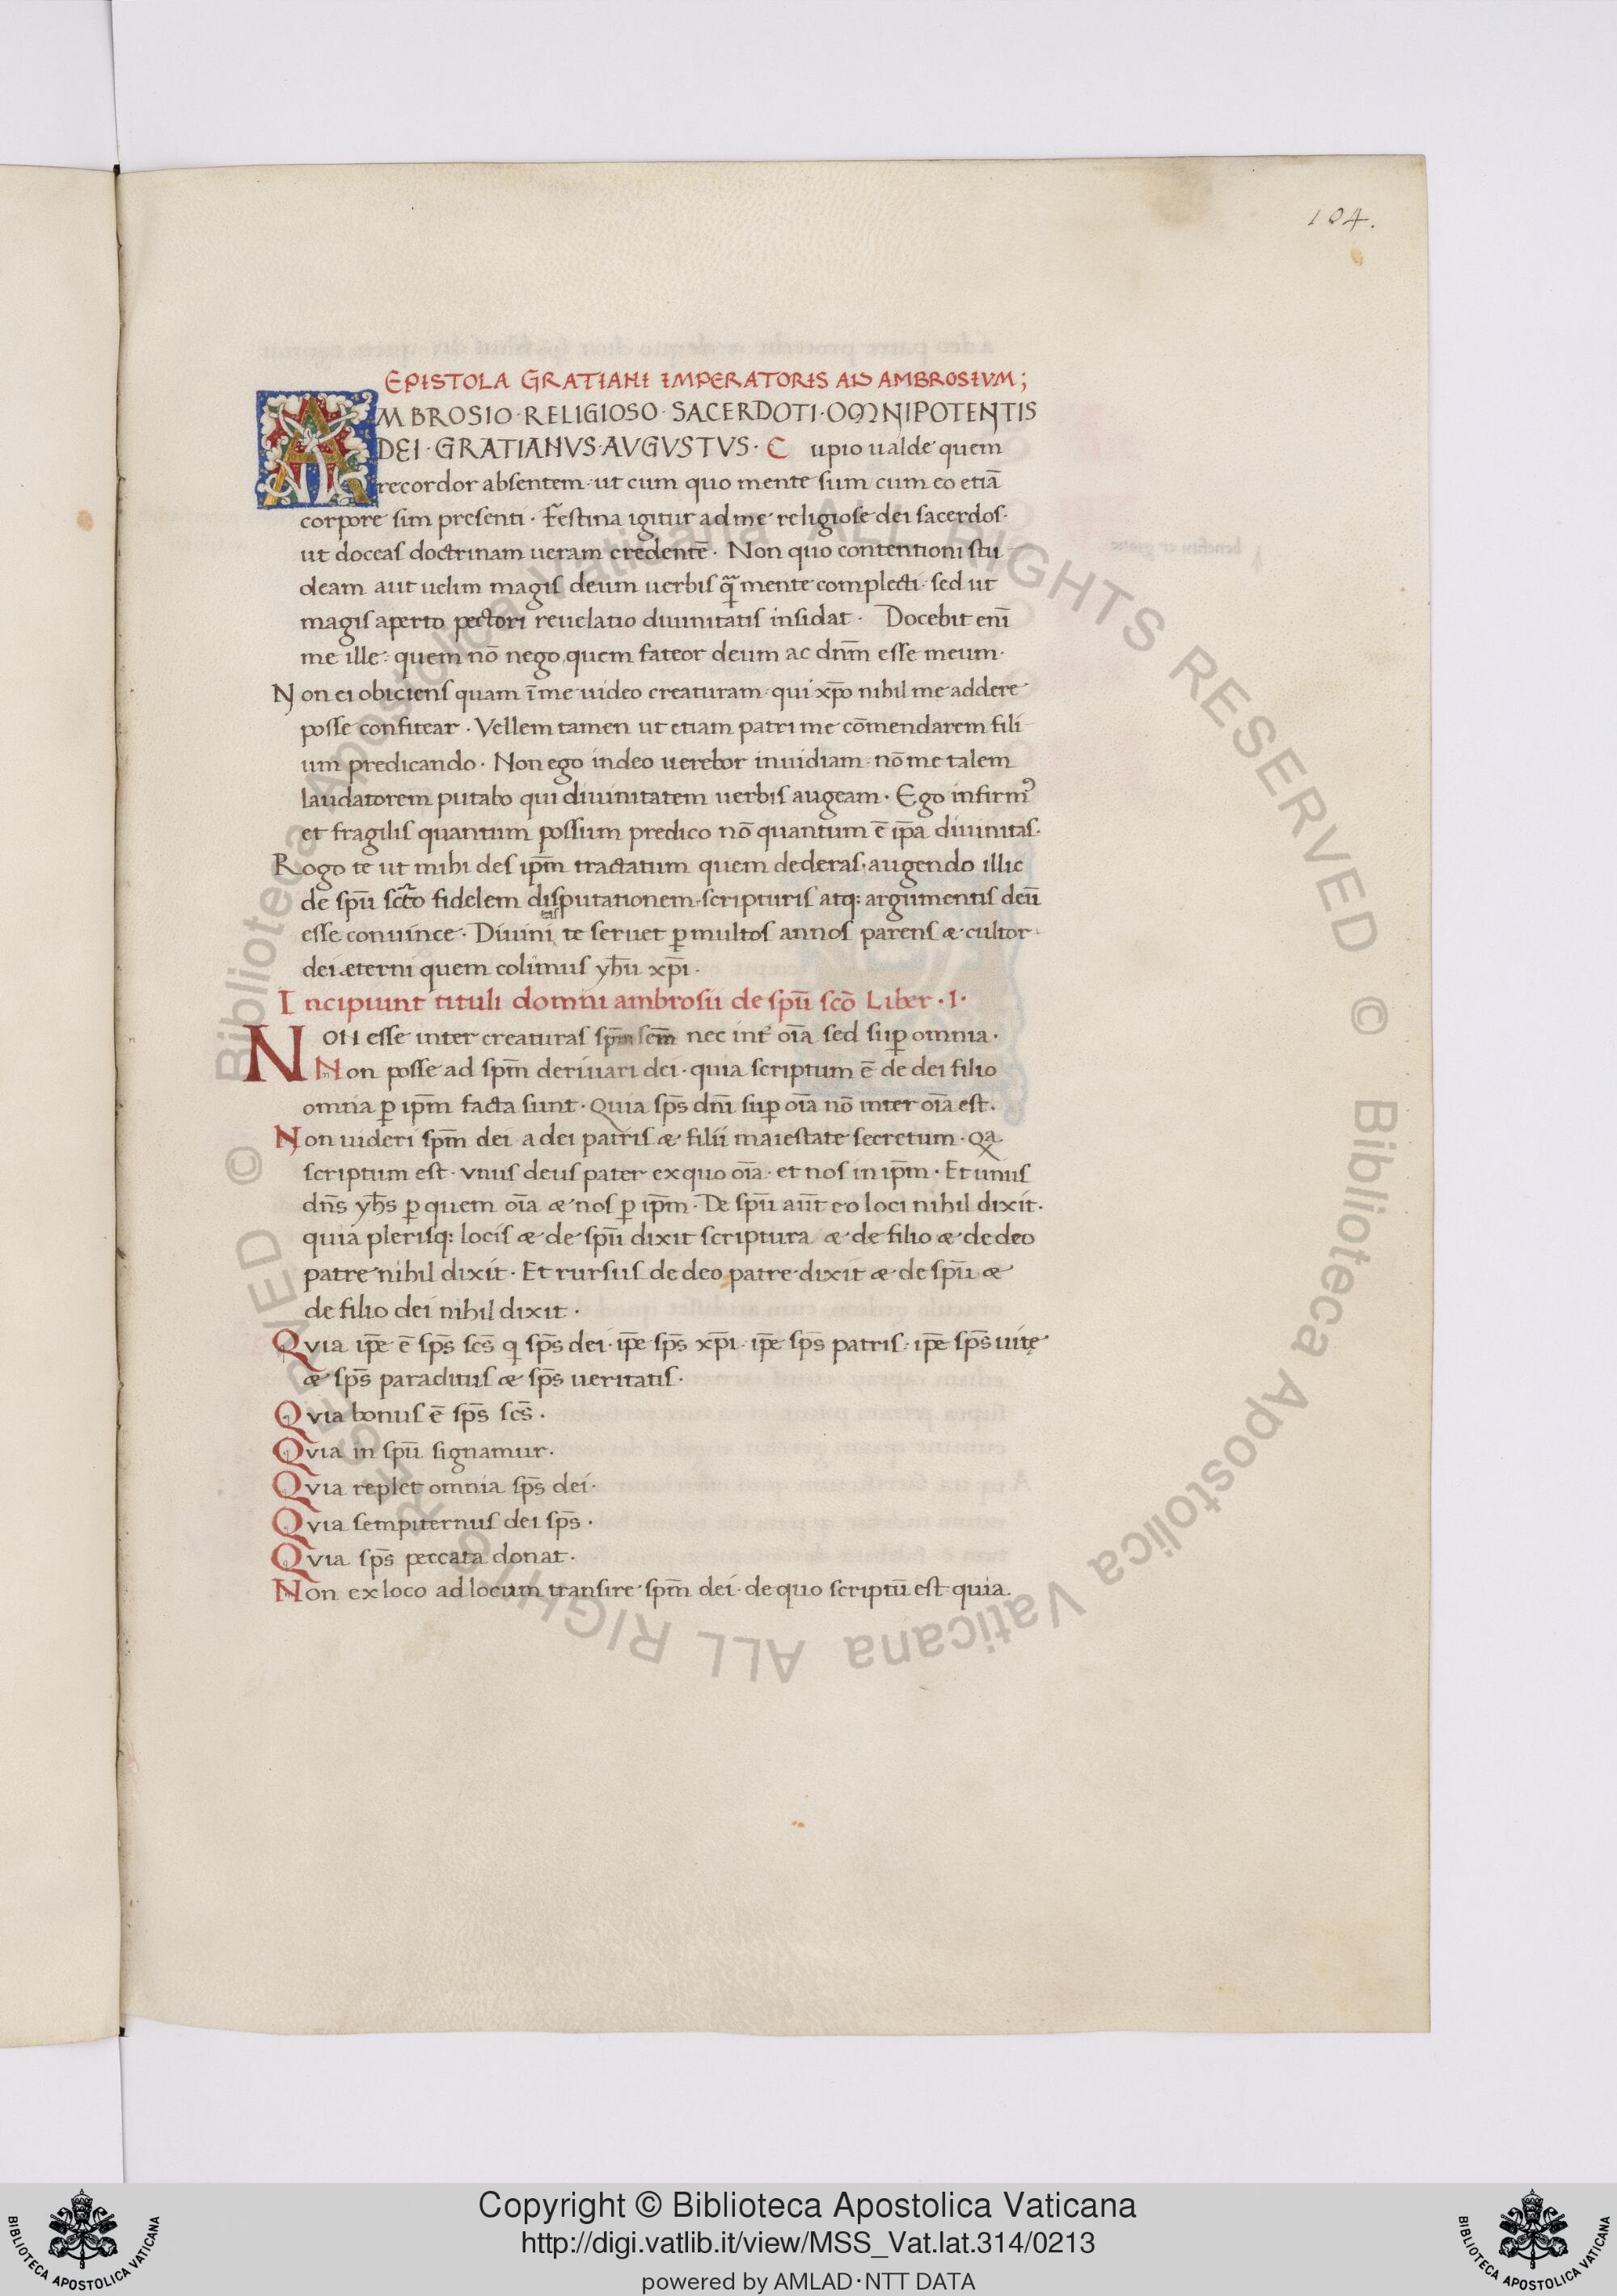 104.
EPISTOLA GRATIANI IMPERATORIS AD AMBROSIVM;
AMBROSIO · RELIGIOSO · SACERDOTI · OMNIPOTENTIS
DEI · GRATIANVS · AVGVSTVS · Cupio ualde quem
recordor absentem · ut cum quo mente sum cum eo etiā
corpore sim presenti · Festina igitur ad me religiose dei sacerdos ·
ut doceas doctrinam ueram credentē · Non quo contentioni stu
deam aut uelim magis deum uerbis q̄ mente complecti · sed ut
magis aperto pectori reuelatio diuinitatis insidat · Docebit enī
me ille : quem nō nego, quem fateor deum ac dn̄m esse meum ·
Non ei obiciens quam ī me uideo creaturam · qui xp̄o nihil me addere
posse confitear · Vellem tamen ut etiam patri me cōmendarem fili
um predicando · Non ego in deo uerebor inuidiam · nō me talem
laudatorem putabo qui diuinitatem uerbis augeam · Ego infirmꝰ
et fragilis quantum possum predico nō quantum ē ip̄a diuinitas ·
Rogo te ut mihi des ip̄m tractatum quem dederas · augendo illic
de spū sc̄to fidelem disputationem · scripturis atq; argumentis deū
esse conuince · Diuinitas te seruet ꝑ multos annos parens æ cultor
dei æterni quem colimus yh̄u xp̄i ·
Incipiunt tituli domni ambrosii de spū scō Liber · I ·
NON esse inter creaturas sp̄m sc̄m nec int̄ oīa sed suꝑ omnia ·
Non posse ad sp̄m deriuari dei · quia scriptum ē de dei filio
omnia ꝑ ip̄m facta sunt · Quia sp̄s dn̄i suꝑ oīa nō inter oīa est ·
Non uideri sp̄m dei a dei patris æ filii maiestate secretum · Qa
scriptum est · vnus deus pater ex quo oīa · et nos in ip̄m · Et unus
dn̄s yh̄s ꝑ quem oīa æ nos ꝑ ip̄m · De spū aūt eo loci nihil dixit ·
quia plerisq; locis æ de spū dixit scriptura æ de filio æ de deo
patre nihil dixit · Et rursus de deo patre dixit æ de spū æ
de filio dei nihil dixit ·
Qvia ip̄e ē sp̄s sc̄s q sp̄s dei · ip̄e sp̄s xp̄i · ip̄e sp̄s patris · ip̄e sp̄s uitę
æ sp̄s paraditus æ sp̄s ueritatis ·
Qvia bonus ē sp̄s sc̄s ·
Qvia in spū signamur ·
Qvia replet omnia sp̄s dei ·
Qvia sempiternus dei sp̄s ·
Qvia sp̄s peccata donat ·
Non ex loco ad locum transire sp̄m dei · de quo scriptū est quia
© Biblioteca Apostolica Vaticana ALL RIGHTS RESERVED © Biblioteca Apostolica Vaticana ALL RIGHTS RESERVED
Copyright © Biblioteca Apostolica Vaticana
http://digi.vatlib.it/view/MSS_Vat.lat.314/0213
powered by AMLAD · NTT DATA
BIBLIOTECA APOSTOLICA VATICANA
BIBLIOTECA APOSTOLICA VATICANA